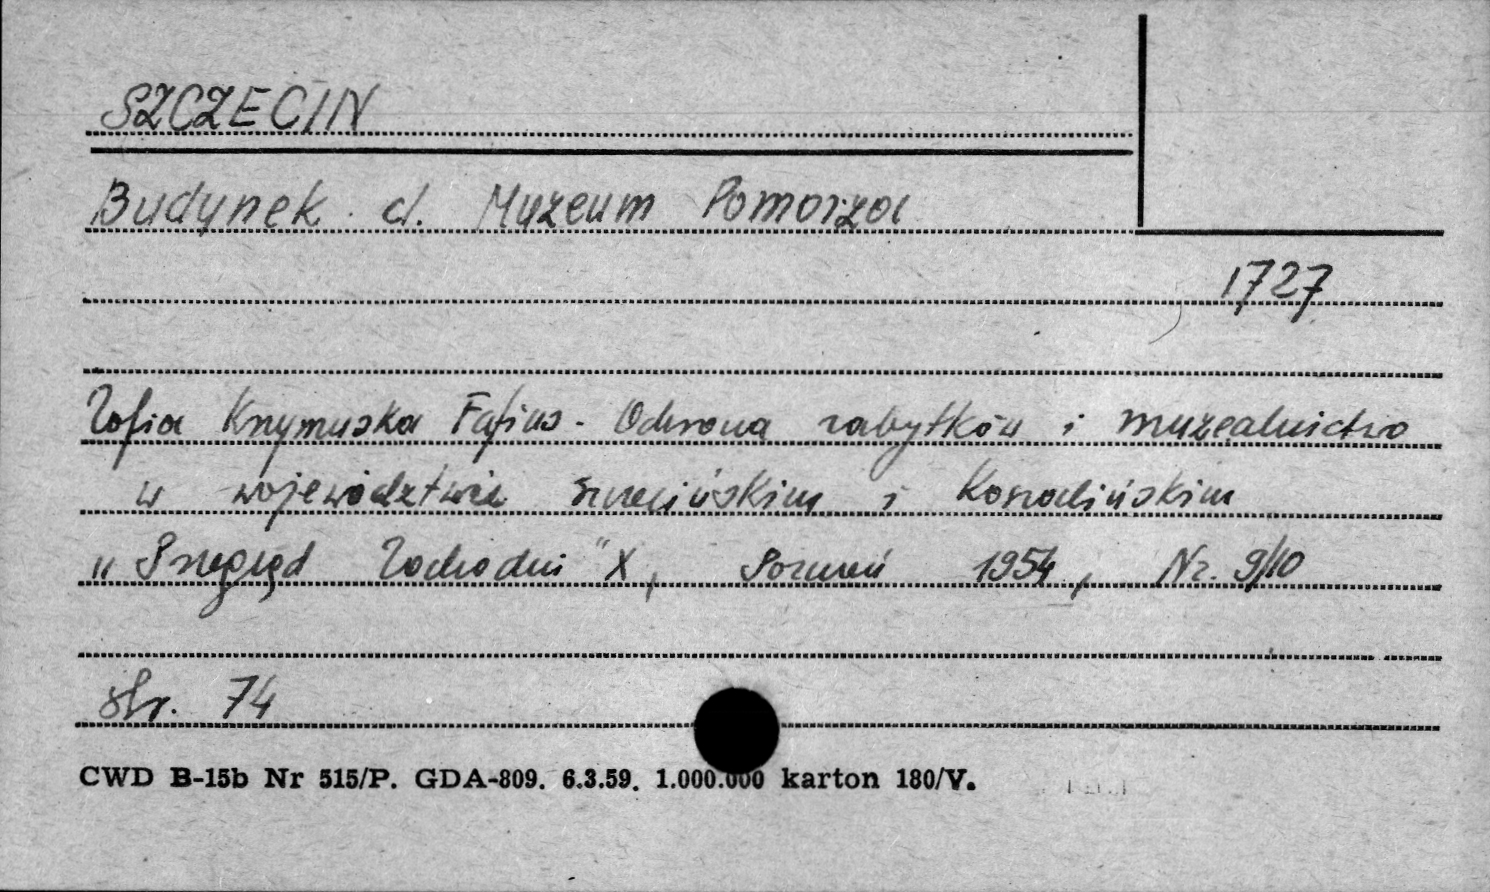 SZCZECIN
Budynek d. Muzeum Pomorza
1727
Zofia Krzymuska Fafius. Ochrona zabytków i muzealnictwo
w województwie szczecińskim i Koszalińskim
„Przegląd Zachodni" X, Poznań 1954, Nr. 9/10
str. 74
CWD B-15b Nr 515/P. GDA-809. 6.3.59. 1.000.000 karton 180/V.